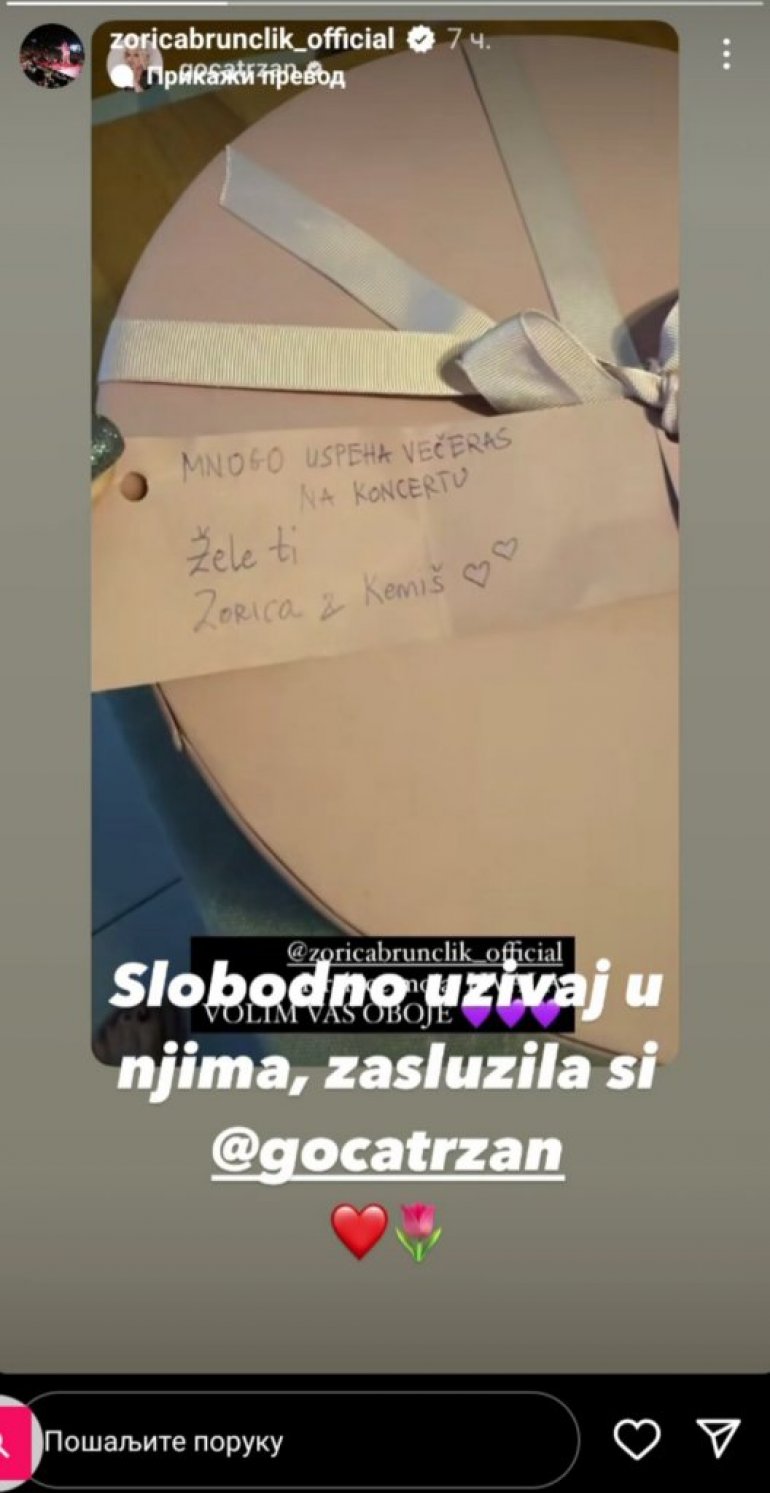 zoricabrunclik_official 7 ч.
gocatrzan
Прикажи превод
MNOGO USPEHA VEČERAS
NA KONCERTU
Žele ti
Zorica i Kemiš ♡♡
@zoricabrunclik_official
VOLIM VAS OBOJE 💜💜💜
Slobodno uzivaj u
njima, zasluzila si
@gocatrzan
❤️🌷
Пошаљите поруку